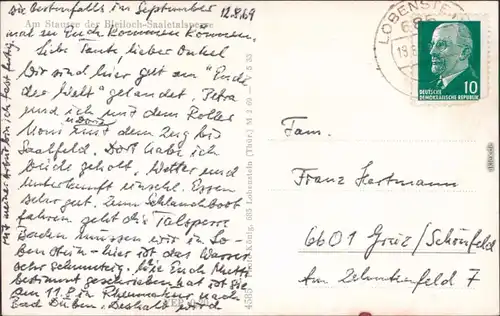 die bestenfalls im September
12.8.69
Am Stausee der Bleiloch-Saaletalsperre
mal zu Euch kommen können.
Liebe Tante, lieber Onkel
Wir sind hier gut am "Ende
der Welt" gelandet. Petra
und ich mit dem Roller
Moni und Doris mit dem Zug bis
Saalfeld. Dort habe ich
beide geholt. Wetter und
Unterkunft einschl. Essen
sehr gut. Zum Schlauchboot
fahren geht die Talsperre
Baden müssen wir in Lo-
benstein - hier ist das Wasser
sehr schmutzig. Wie Euch Mutti
bestimmt geschrieben hat ist sie
am 11.8 in nach
Bad Düben. Deshalb wird
Mit meiner Arbeit bin ich fast fertig
König, 685 Lobenstein (Thür.)
LOBENSTEIN
685
19.8
10
DEUTSCHE
DEMOKRATISCHE REPUBLIK
Fam.
Franz Hartmann
6601 Greiz/Schönfeld
Am Zehntenfeld 7